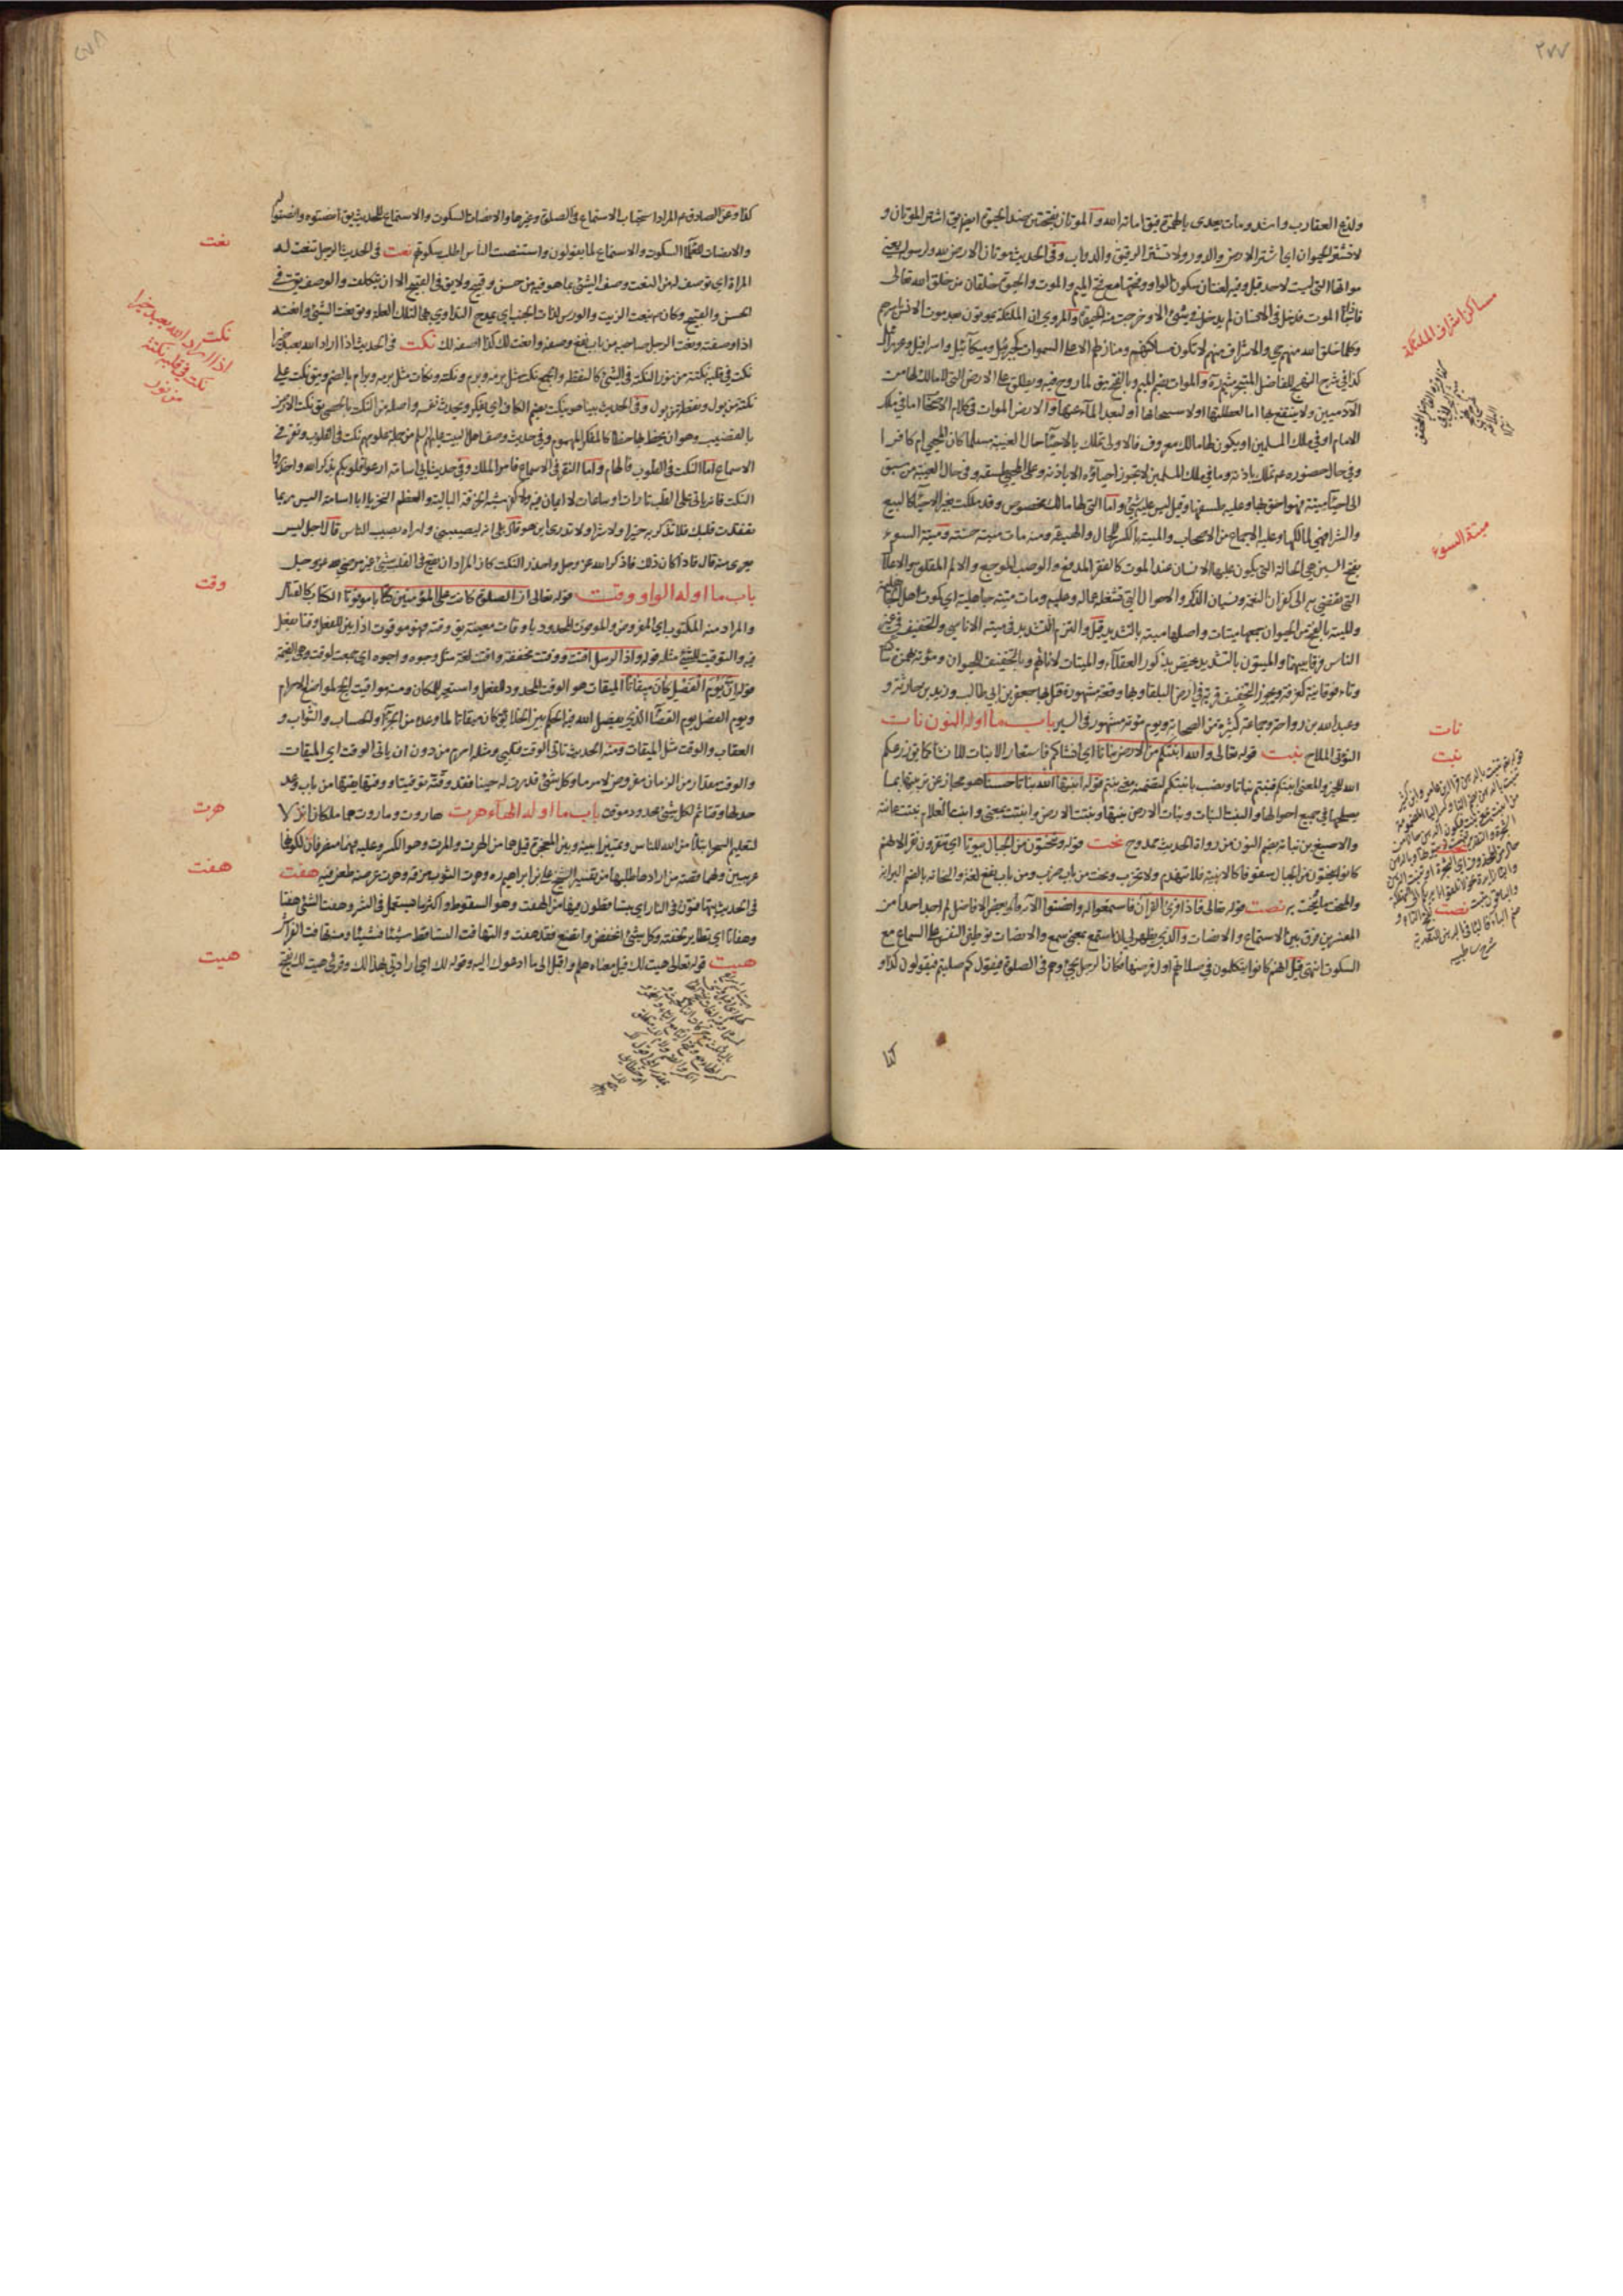 ٢٧٧
ولدغ العقارب واشد ومات يعدى بالهمزة فيق اماته الله والموتان بفتحتين ضد الحيوة ايض يق اشتر الموتان و
لا تشتر الحيوان اى اشتر الارض والدور ولا تشتر الرقيق والدواب وفى الحديث موتان الارض لله ولرسوله يعنى
مواتها التى ليست لاحد قيل وفيه لغتان سكون الواو وفتحها مع فتح الميم والموت والحيوة خلقان من خلق الله تعالى
فاذا جاء الموت فدخل فى الانسان لم يدخل فى شئ الا وخرجت منه الحيوة والمروى ان الملئكة يموتون بعد موت الانس
وكلما خلق الله
كذا فى شرح النهج للفاضل المتبحر ميثم ره والموات بضم الميم وبالفتح يق لما روح فيه ويطلق على الارض التى لا مالك لها من
الآدميين ولا ينتفع بها اما لعطلتها او لاستيجامها او لبعد المآء عنها والارض الموات فى كلام الاصحاب اما فى ملك
الامام او فى ملك المسلمين او يكون لها مالك معروف فالاولى تملك بالاحيآء حال الغيبة مسلما كان المحيى ام كافرا
وفى حال حضوره عم تملك باذنه وما فى ملك المسلمين لا يجوز احياؤه الا باذنه وعلى المحيى طسقه وفى حال الغيبة من سبق
الى احيآء ميتة فهو احق بها وعليه طسقها وقيل ليس عليه شئ واما التى لها مالك مخصوص وقد ملكت بغير الاحيآء كالبيع
والشرا فهى لمالكها وعليه الاجماع من الاصحاب والميتة بالكسر للحال والهيئة ومنه مات ميتة حسنة وميتة السوء
بفتح السين هى الحالة التى يكون عليها الانسان عند الموت كالفقر المدقع والوصب الموجع والالم المقلق والاعلال
التى تفضى به الى كفران النعمة ونسيان الذكر والاهوال التى تشغله عماله وعليه ومات ميتة جاهلية اى كموت اهل الجاهلية
والميتة بالفتح من الحيوان جمعها ميتات واصلها ميتة بالتشديد قيل والتزم التشديد فى ميتة الاناسى والتخفيف فى غير
الناس فرقا بينهما والميتون بالتشديد يختص بذكور العقلآء والميتات لاناثهم وبالتخفيف للحيوان ومؤتة بهمزة ساكنة
وتاء فوقانية كغرفة ويجوز التخفيف قرية فى ارض البلقا وبها وقعة مشهورة قتل بها جعفر بن ابى طالب وزيد بن حارثة و
وعبد الله بن رواحة وجماعة كثيرة من الصحابة ويوم مؤتة مشهور فى السير باب ما اوله النون نات
النوتى الملاح نبت قوله تعالى والله انبتكم من الارض نباتا اى انشاكم فاستعار الانبات للانشا كما يق زرعكم
الله للخير والمعنى انبتكم فنبتم نباتا ونصب بانبتكم لتضمنه معنى نبتم قوله انبتها الله نباتا حسنا هو مجاز عن تربيتها بما
يصلحها فى جميع احوالها والنبت النبات ونبات الارض نبتها ونبتت الارض وانبتت بمعنى وانبت الغلام نبتت عانته
والاصبغ بن نباتة بضم النون من رواة الحديث ممدوح نحت قوله وتنحتون من الجبال بيوتا اى تنقرون نقرا لانهم
كانوا ينحتون من الجبال سقوفا كالابنية فلا تنهدم ولا تخرب ونحت من باب ضرب ومن باب نفع لغة والنحاتة بالضم البراية
والمنحت ما ينحت به نصت قوله تعالى فاذا قرئ القران فاستمعوا له وانصتوا الآية قال بعض الافاضل لم اجد احدا من
المفسرين فرق بين الاستماع والانصات والذى يظهر لى ان استمع بمعنى سمع والانصات توطين النفس على السماع مع
السكوت انتهى قيل انهم كانوا يتكلمون فى صلاتهم اول فرضها فكان الرجل يجئ وهم فى الصلوة فيقول كم صليتم فيقولون كذا و
كذا
مساكن اشراف الملئكة
ميتة السوء
نات
نبت
نحت
نصت
٢٧٨
كذا وعن الصادق عم المراد استحباب الاستماع فى الصلوة وغيرها والانصات السكوت والاستماع للحديث يق انصتوه وانصتوا له
والانصات للعلمآء السكوت والاستماع لما يقولون واستنصت الناس اطلب سكوتهم نعت فى الحديث الرجل تنعت له
المراة اى توصف له من النعت وصف الشئ بما هو فيه من حسن وقبيح ولا يق فى القبيح الا ان يتكلف والوصف يق فى
الحسن والقبيح وكان ينعت الزيت والورس لذات الجنب اى يمدح التداوى بهما لتلك العلة ويق نعت الشئ وانتعته
اذا وصفته ونعت الرجل صاحبه من باب نفع وصفه وانعت لك كذا اصفه لك نكت فى الحديث اذا اراد الله بعبد خيرا
نكت فى قلبه نكتة من نور النكتة فى الشئ كالنقطة والجمع نكت مثل برمة وبرم ونكتة ونكات مثل برمة وبرام بالضم ويق نكت على
نكتة من بول ونقطة من بول وفى الحديث بينا هو ينكت بضم الكاف اى يفكر ويحدث نفسه واصله من النكت بالحصى يق نكت الارض
بالقضيب وهو ان يخط بها خطا كالمفكر المهموم وفى حديث وصف اهل البيت عليهم السلم من جملة علومهم نكت فى القلوب ونقر فى
الاسماع اما النكت فى القلوب فالهام واما النقر فى الاسماع فامر الملك وفى حديث ابى اسامة ارعوا قلوبكم بذكر الله واحذروا
النكت فانه ياتى على القلب تارات او ساعات لا ايمان فيه ولا كفر شبه الخرقة البالية والعظم النخر يا ابا اسامة اليس ربما
تفقدت قلبك فلا تذكر به خيرا ولا شرا ولا تدرى اين هو قال بلى انه ليصيبنى ولنراه يصيب الناس قال اجل ليس
يعرى منه قال فاذا كان ذلك فاذكر الله عز وجل واحذر النكت كان المراد ان يقع فى القلب شئ غير مرضى لله عز وجل
باب ما اوله الواو وقت قوله تعالى ان الصلوة كانت على المؤمنين كتابا موقوتا الكتاب كالقتال
والمراد منه المكتوب اى المفروض والموقوت المحدود باوقات معينة يق وقته فهو موقوت اذا بين للفعل وقتا يفعل
فيه والتوقيت للشئ مثله قوله واذا الرسل اقتت ووقتت مخففة واقتت لغة مثل وجوه واجوه اى جمعت لوقت وهى القيمة
قوله ان يوم الفصل كان ميقاتا الميقات هو الوقت المحدود للفعل واستعير للمكان ومنه مواقيت الحج لمواضع الاحرام
ويوم الفصل يوم القضآء الذى يفصل الله فيه الحكم بين الخلائق كان ميقاتا لما وعد من الجزآء والحساب والثواب و
العقاب والوقت مثل الميقات ومنه الحديث تاتى الوقت فتلبى ومثله احرم من دون ان ياتى الوقت اى الميقات
والوقت مقدار من الزمان مفروض لامر ما وكل شئ قدرت له حينا فقد وقته توقيتا ووقتها يقتها من باب وعد
حد لها وقتا ثم لكل شئ محدود موقت باب ما اوله الهآء هرت هاروت وماروت هما ملكان انزلا
لتعليم السحر ابتلآء من الله للناس وتمييزا بينه وبين المعجزة قيل هما من الهرت والمرت وهو الكسر وعليه فهما منصرفان لكونهما
عربيين ولهما قصة من ارادها طلبها من تفسير الشيخ على بن ابراهيم ره وهرت الثوب مزقه وهرت عرضه طعن فيه هفت
فى الحديث يتهافتون فى النار اى يتساقطون فيها من الهفت وهو السقوط واكثر ما يستعمل فى الشر وهفت الشئ هفتا
وهفاتا اى تطاير لخفته وكل شئ انخفض واتضع فقد هفت والتهافت التساقط شيئا فشيئا ومنه تهافت الفراش
هيت قوله تعالى هيت لك قيل معناه هلم واقبل الى ما ادعوك اليه وقوله لك اى ارادتى بهذا لك وقرئ هيت لك بفتح
نعت
نكت
اذا اراد الله بعبد خيرا
نكت فى قلبه نكتة
من نور
وقت
هرت
هفت
هيت